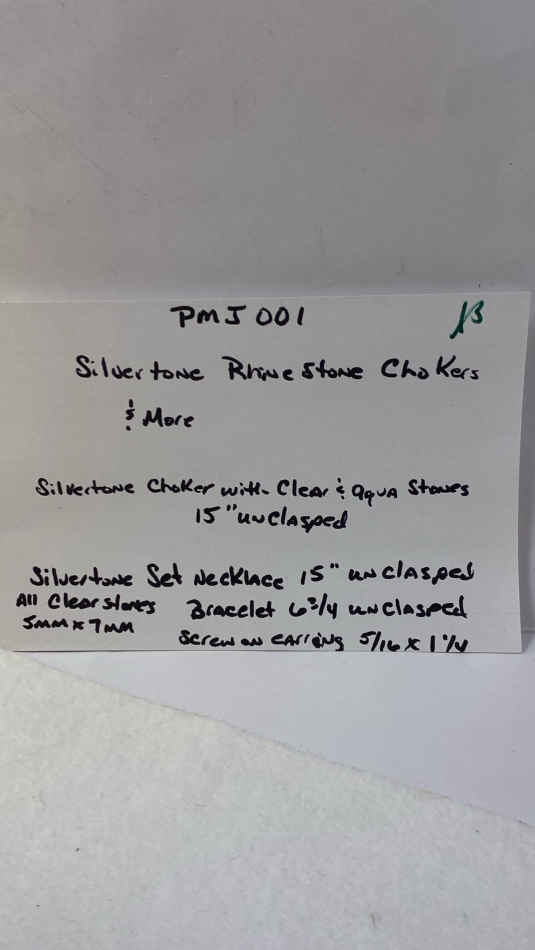 PMJ 001
Silvertone Rhinestone Chokers
& More
Silvertone Choker with Clear & aqua Stones
15" unclasped
Silvertone Set Necklace 15" unclasped
All Clear stones Bracelet 6 3/4 unclasped
5mm x 7mm
Screw on earring 5/16 x 1 1/4